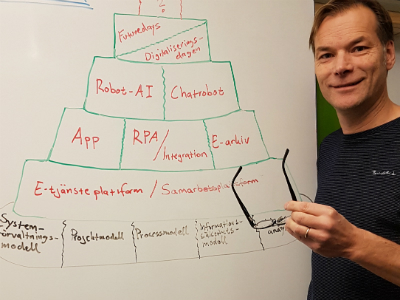 Futuredrops
Digitaliserings-
dagen
Robot-AI
Chatrobot
App
RPA/
Integration
E-arkiv
E-tjänsteplattform / Samarbetsplattform
System-
förvaltnings-
modell
Projektmodell
Processmodell
Informations-
säkerhets-
modell